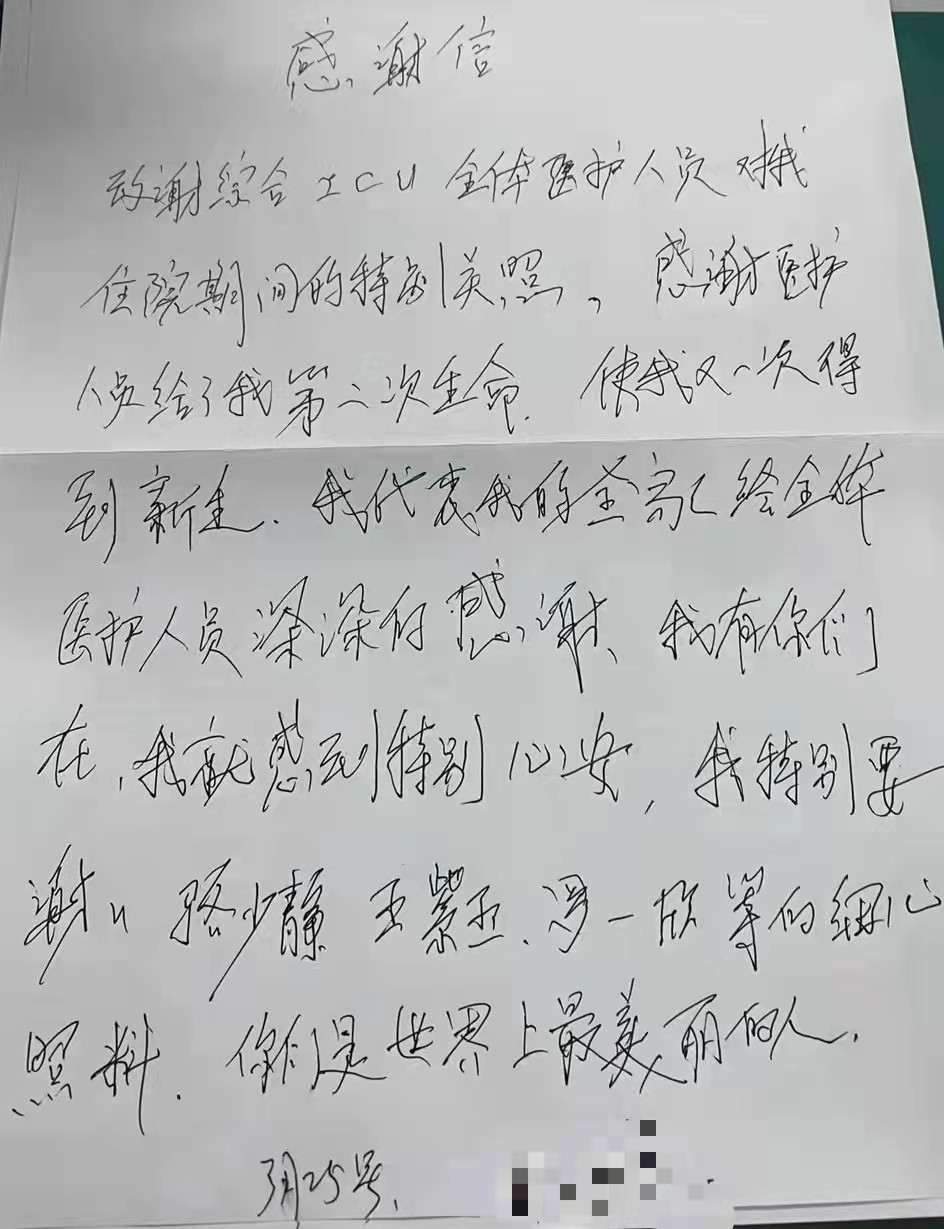 感谢信
致谢综合ICU全体医护人员对我
住院期间的特别关照,感谢医护
人员给了我第二次生命.使我又一次得
到新生.我代表我的全家给全体
医护人员深深的感谢、我有你们
在,我就感到特别心安,我特别要
谢谢骆少静 王紫丞、一欣等的细心
照料.你们是世界上最美丽的人.
月25号.